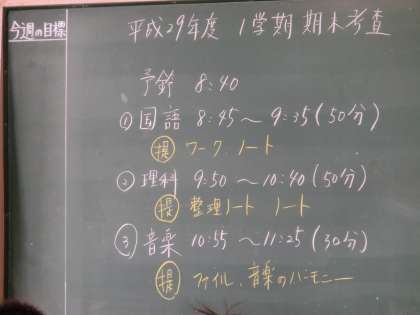 今週の目標
平成29年度 1学期 期末考査
予鈴 8:40
① 国語 8:45〜9:35(50分)
提 ワーク、ノート
② 理科 9:50〜10:40(50分)
提 整理ノート ノート
③ 音楽 10:55〜11:25(30分)
提 ファイル、音楽のハーモニー